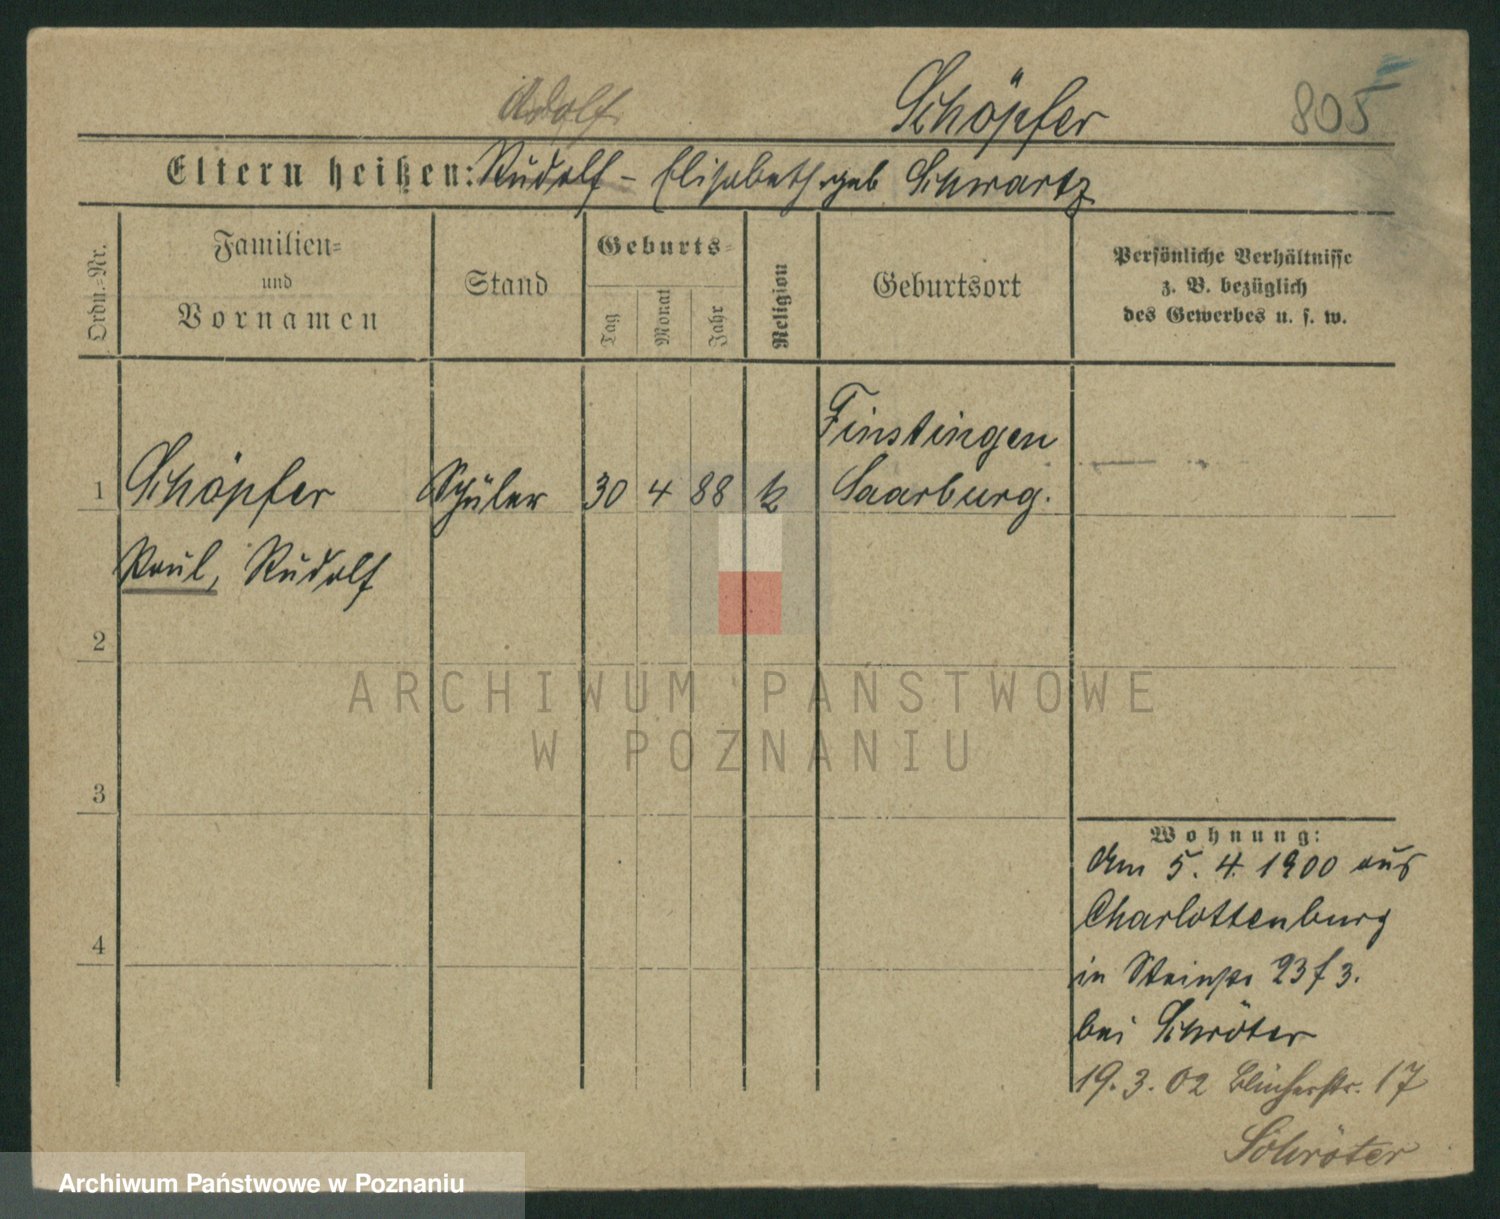 Adolf Schöpfer 805
Eltern heißen: Rudolf - Elisabeth geb Schwartz
Ordn.=Nr.
Familien=
und
Vornamen
Stand
Geburts=
Tag
Monat
Jahr
Religion
Geburtsort
Persönliche Verhältnisse
z. B. bezüglich
des Gewerbes u. s. w.
Finstingen
1 Schöpfer Schüler 30 4 88 k Saarburg.
Paul, Rudolf
2
3
4
ARCHIWUM PAŃSTWOWE
W POZNANIU
Wohnung:
Am 5. 4. 1900 aus
Charlottenburg
in 23 3.
bei Schröter
19. 3. 02 Blücherstr. 17
Schröter
Archiwum Państwowe w Poznaniu